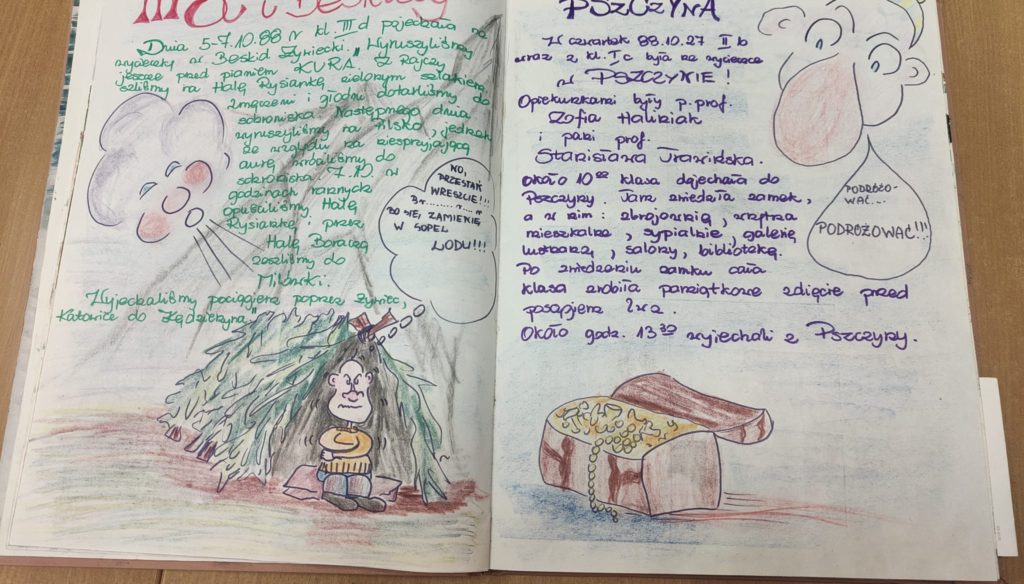 III d i Beskidy
Dnia 5-7.10.88 r kl. III d pojechała na
wycieczkę w Beskid Żywiecki. "Wyruszyliśmy
jeszcze przed pianiem KURA. Z Rajczy
szliśmy na Halę Rysiankę zielonym szlakiem.
Zmęczeni i głodni dotarliśmy do
schroniska. Następnego dnia
wyruszyliśmy na Pilsko, jednak
ze względu na niesprzyjającą
aurę wróciliśmy do
schroniska. 7.10. w
godzinach rannych
opuściliśmy Halę
Rysiankę i przez
Halę Boraczą
zeszliśmy do
Milówki.
Wyjechaliśmy pociągiem poprzez Żywiec,
Katowice do Kędzierzyna."
NO,
PRZESTAŃ
WRESZCIE!..
BO SIĘ ZAMIENIĘ
W SOPEL
LODU!!!
PSZCZYNA
W czwartek 88.10.27 II b
wraz z kl. I c była na wycieczce
w PSZCZYNIE!
Opiekunkami były p. prof.
Zofia Haliniak
i pani prof.
Stanisława Trawińska.
Około 10⁰⁰ klasa dojechała do
Pszczyny. Tam zwiedziła zamek,
a w nim: zbrojownię, wnętrza
mieszkalne, sypialnie, galerię
lustrzaną, salony, bibliotekę.
Po zwiedzeniu zamku cała
klasa zrobiła pamiątkowe zdjęcie przed
posągiem lwa.
Około godz. 13³⁰ wyjechali z Pszczyny.
PODRÓŻO-
WAĆ...
PODRÓŻOWAĆ!!!